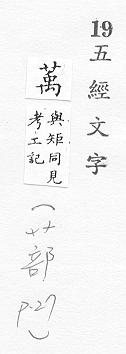 19 五經文字
萭
與矩同見
考工記
(艹部
p.27)